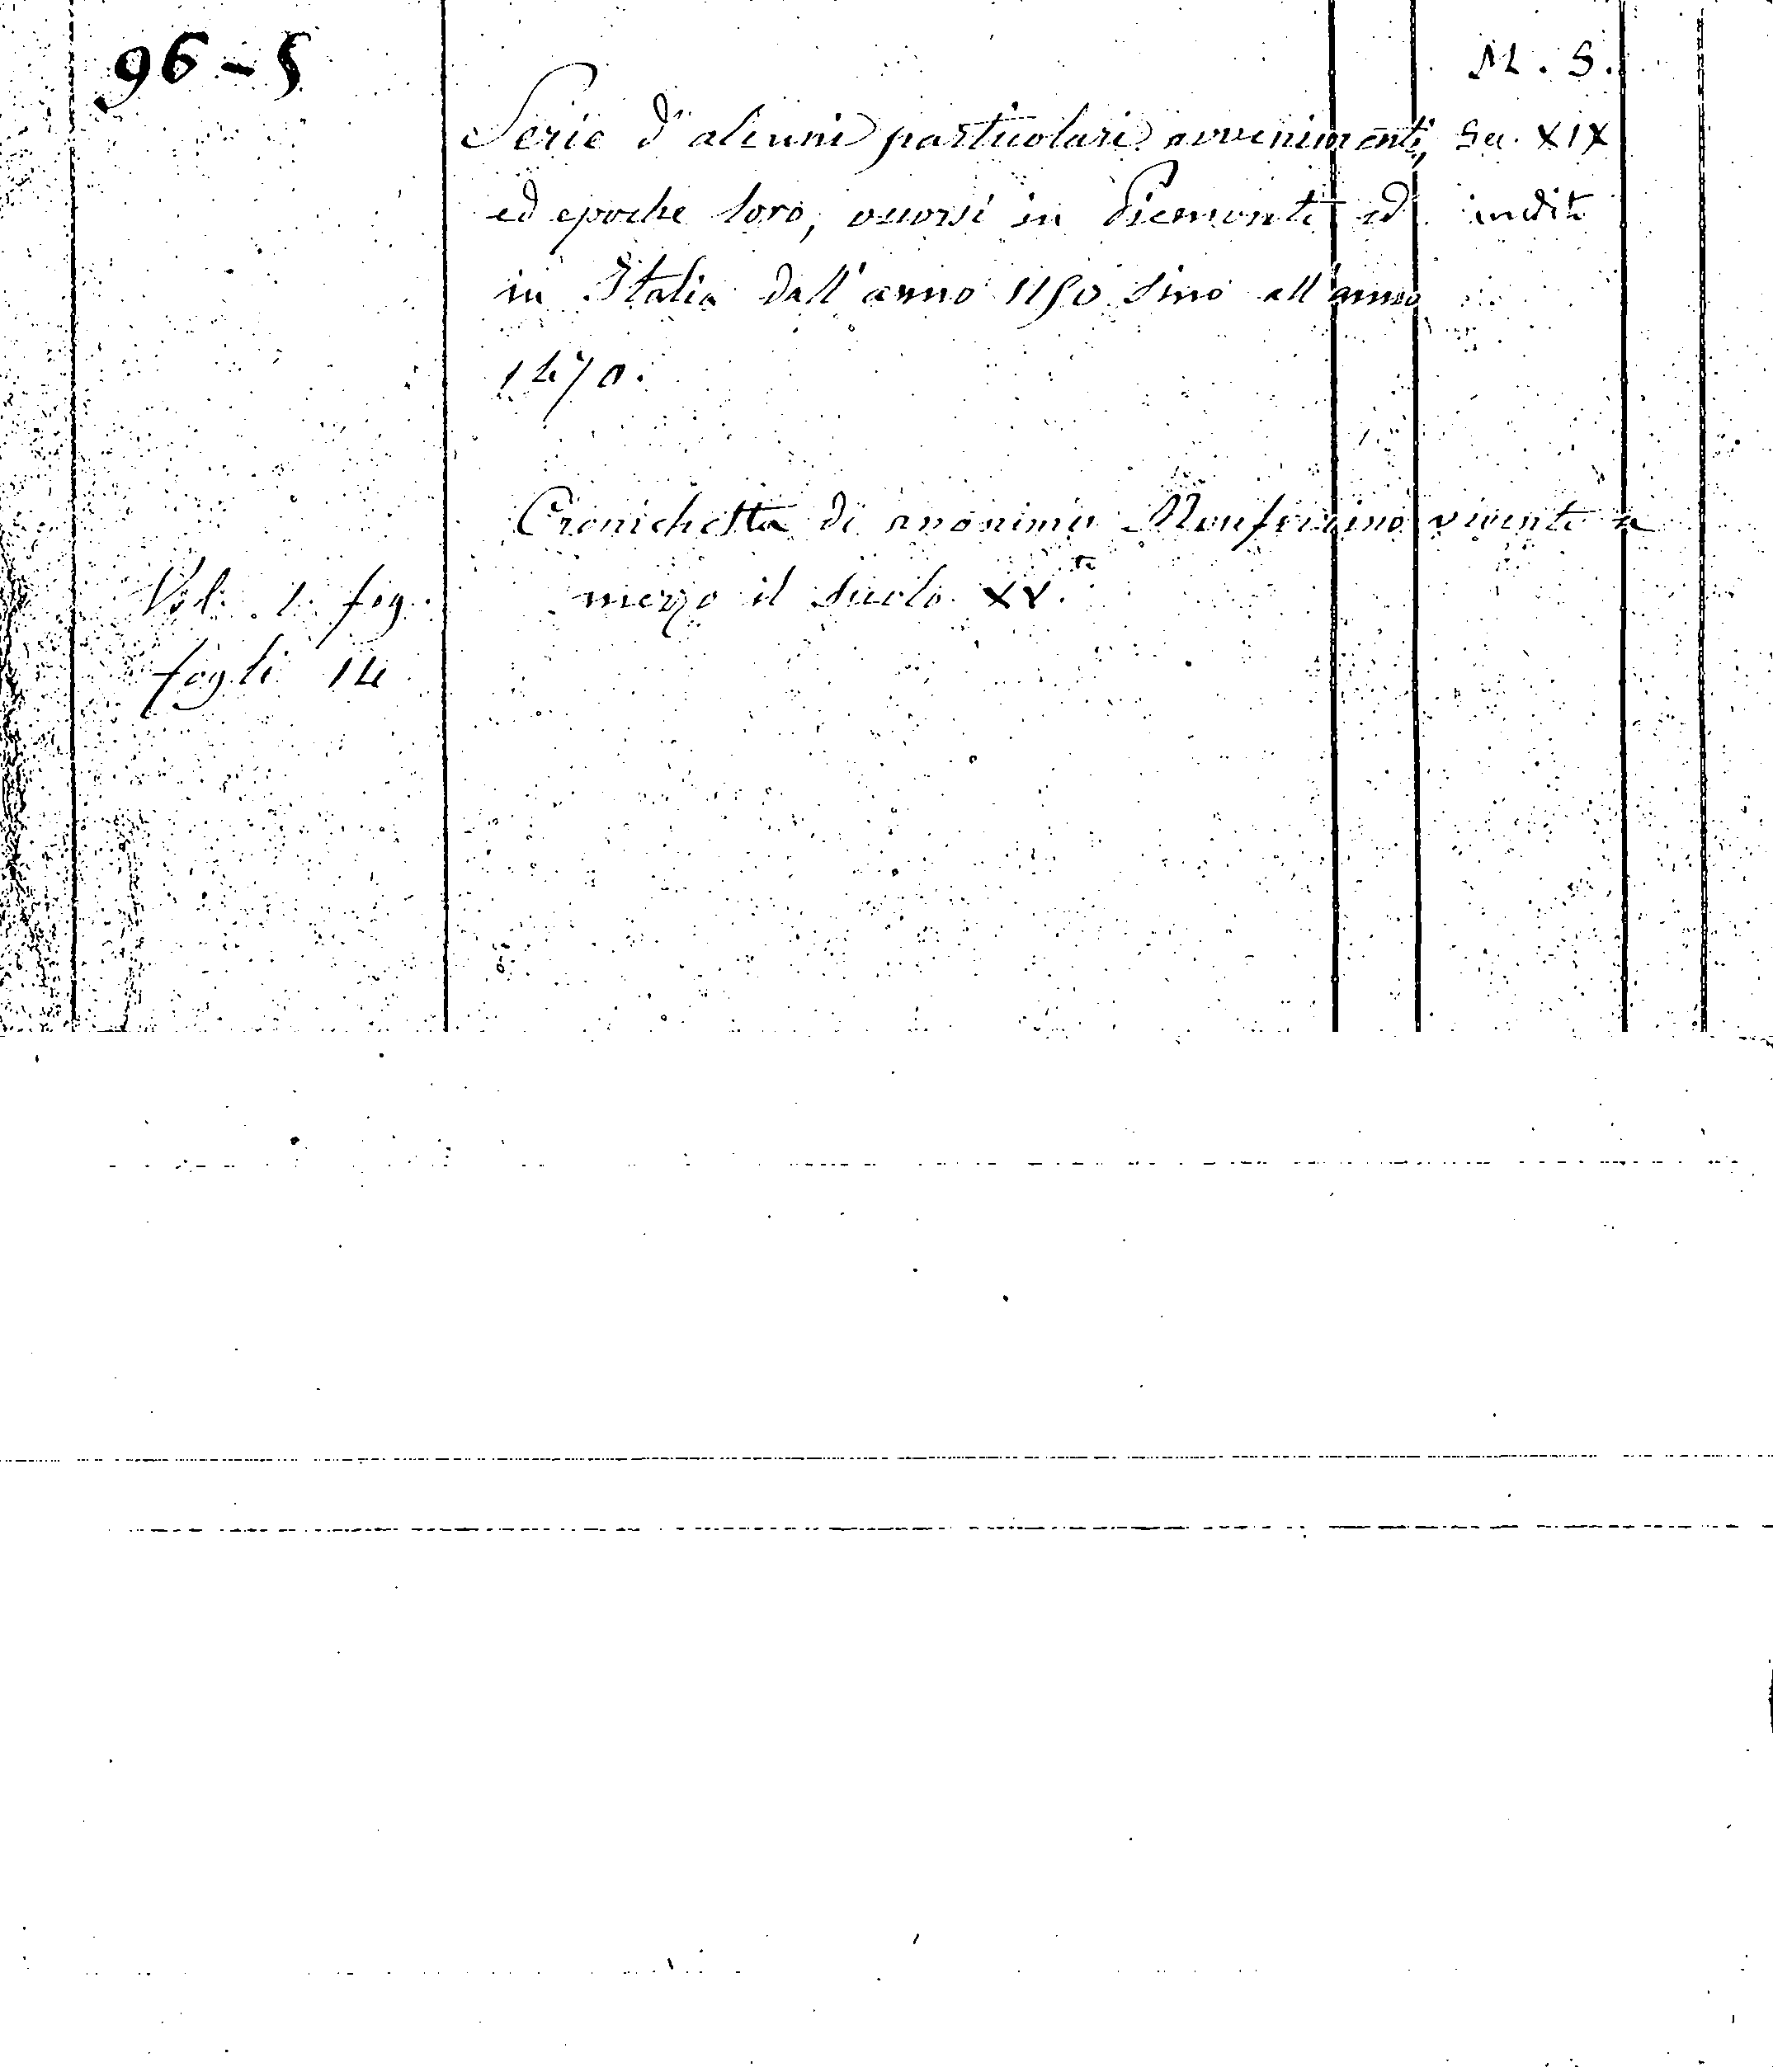 96-5
M. S.
Serie d'alcuni particolari avvenimenti, Sec. XIX
ed epoche loro, occorsi in Piemonte ed inedito
in Italia dall'anno 1150 sino all'anno
1470.
Cronichetta di anonimo Monferrino vivente a
mezzo il secolo XV.to
Vol. 1. fog.
fogli 14